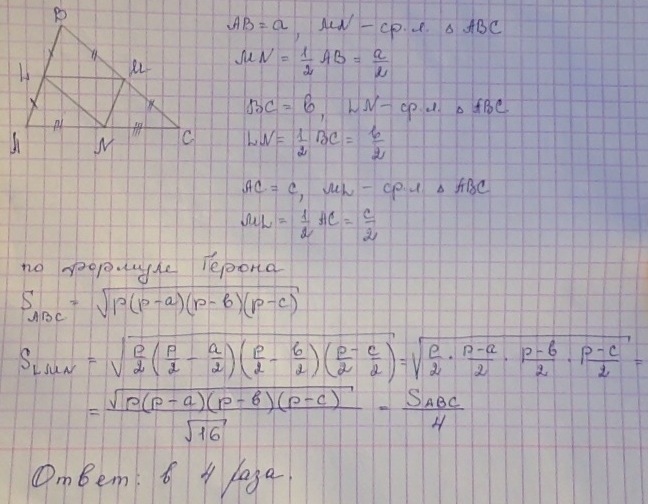 B
L M
A N C
AB = a, MN – ср.л. △ ABC
MN = 1/2 AB = a/2
BC = b, LN – ср.л. △ ABC
LN = 1/2 BC = b/2
AC = c, ML – ср.л. △ ABC
ML = 1/2 AC = c/2
по формуле Герона
S_ABC = √(p(p-a)(p-b)(p-c))
S_LMN = √(p/2 (p/2 - a/2)(p/2 - b/2)(p/2 - c/2)) = √(p/2 · (p-a)/2 · (p-b)/2 · (p-c)/2) =
= √(p(p-a)(p-b)(p-c)) / √16 = S_ABC / 4
Ответ: в 4 раза.